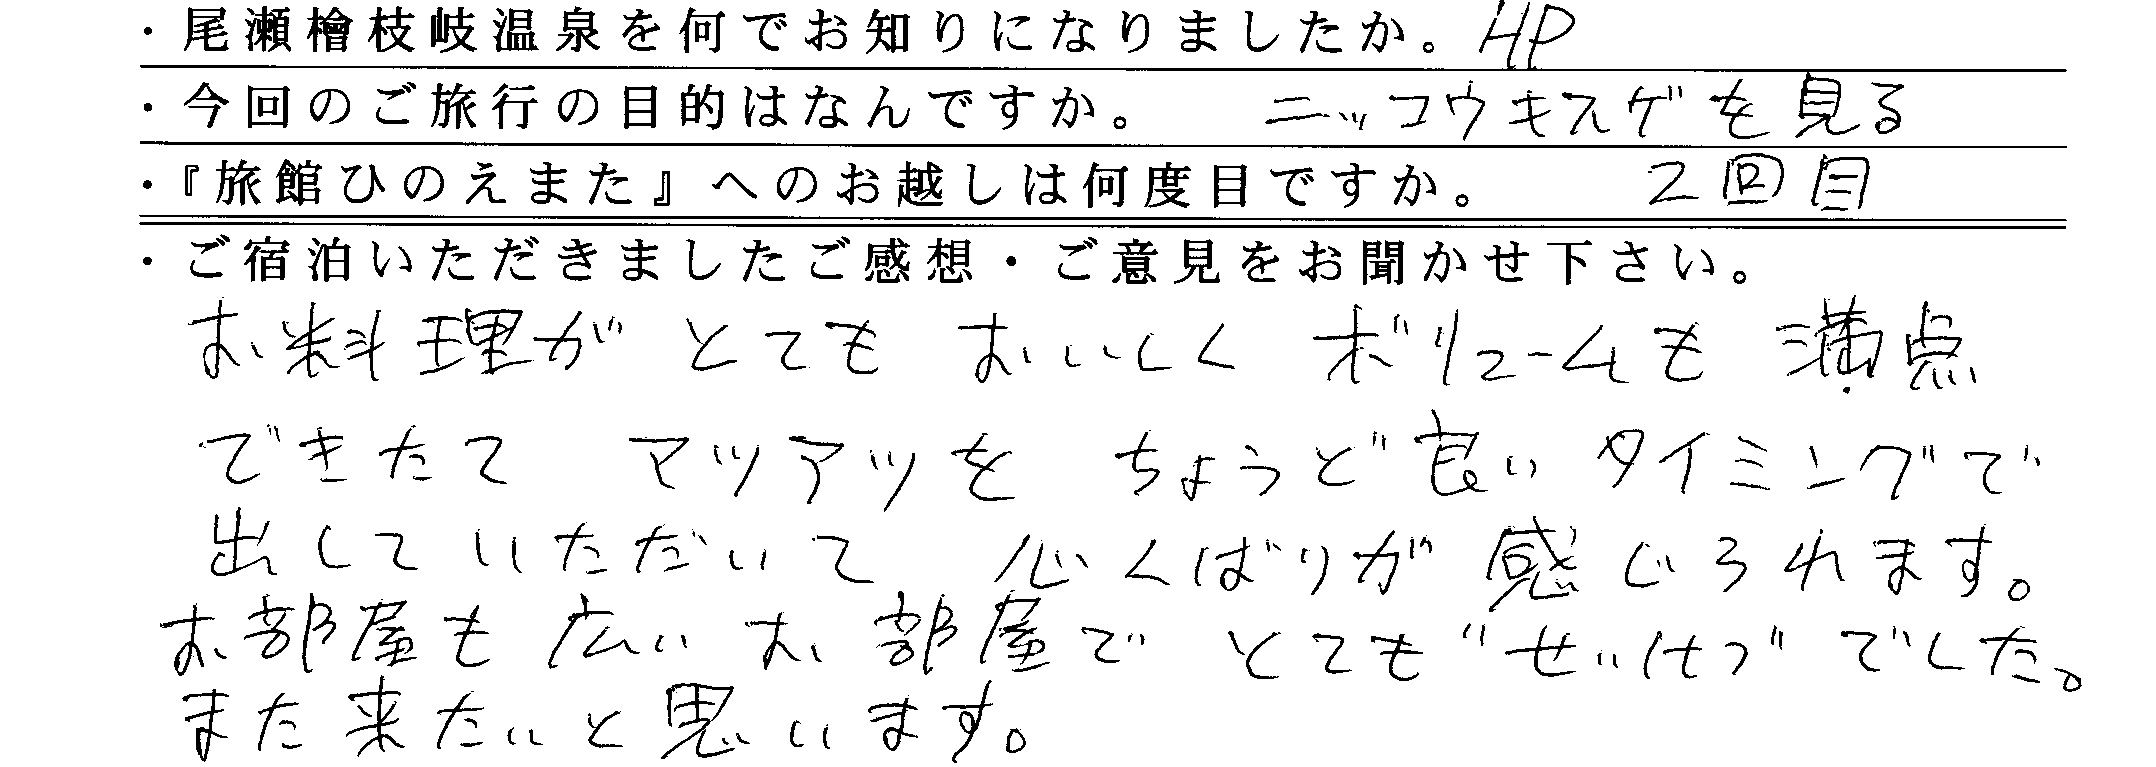 ・尾瀬檜枝岐温泉を何でお知りになりましたか。 HP
・今回のご旅行の目的はなんですか。 ニッコウキスゲを見る
・『旅館ひのえまた』へのお越しは何度目ですか。 2回目
・ご宿泊いただきましたご感想・ご意見をお聞かせ下さい。
お料理がとてもおいしくボリュームも満点
できたてアツアツをちょうど良いタイミングで
出していただいて心くばりが感じられます。
お部屋も広いお部屋でとても"せいけつ"でした。
また来たいと思います。